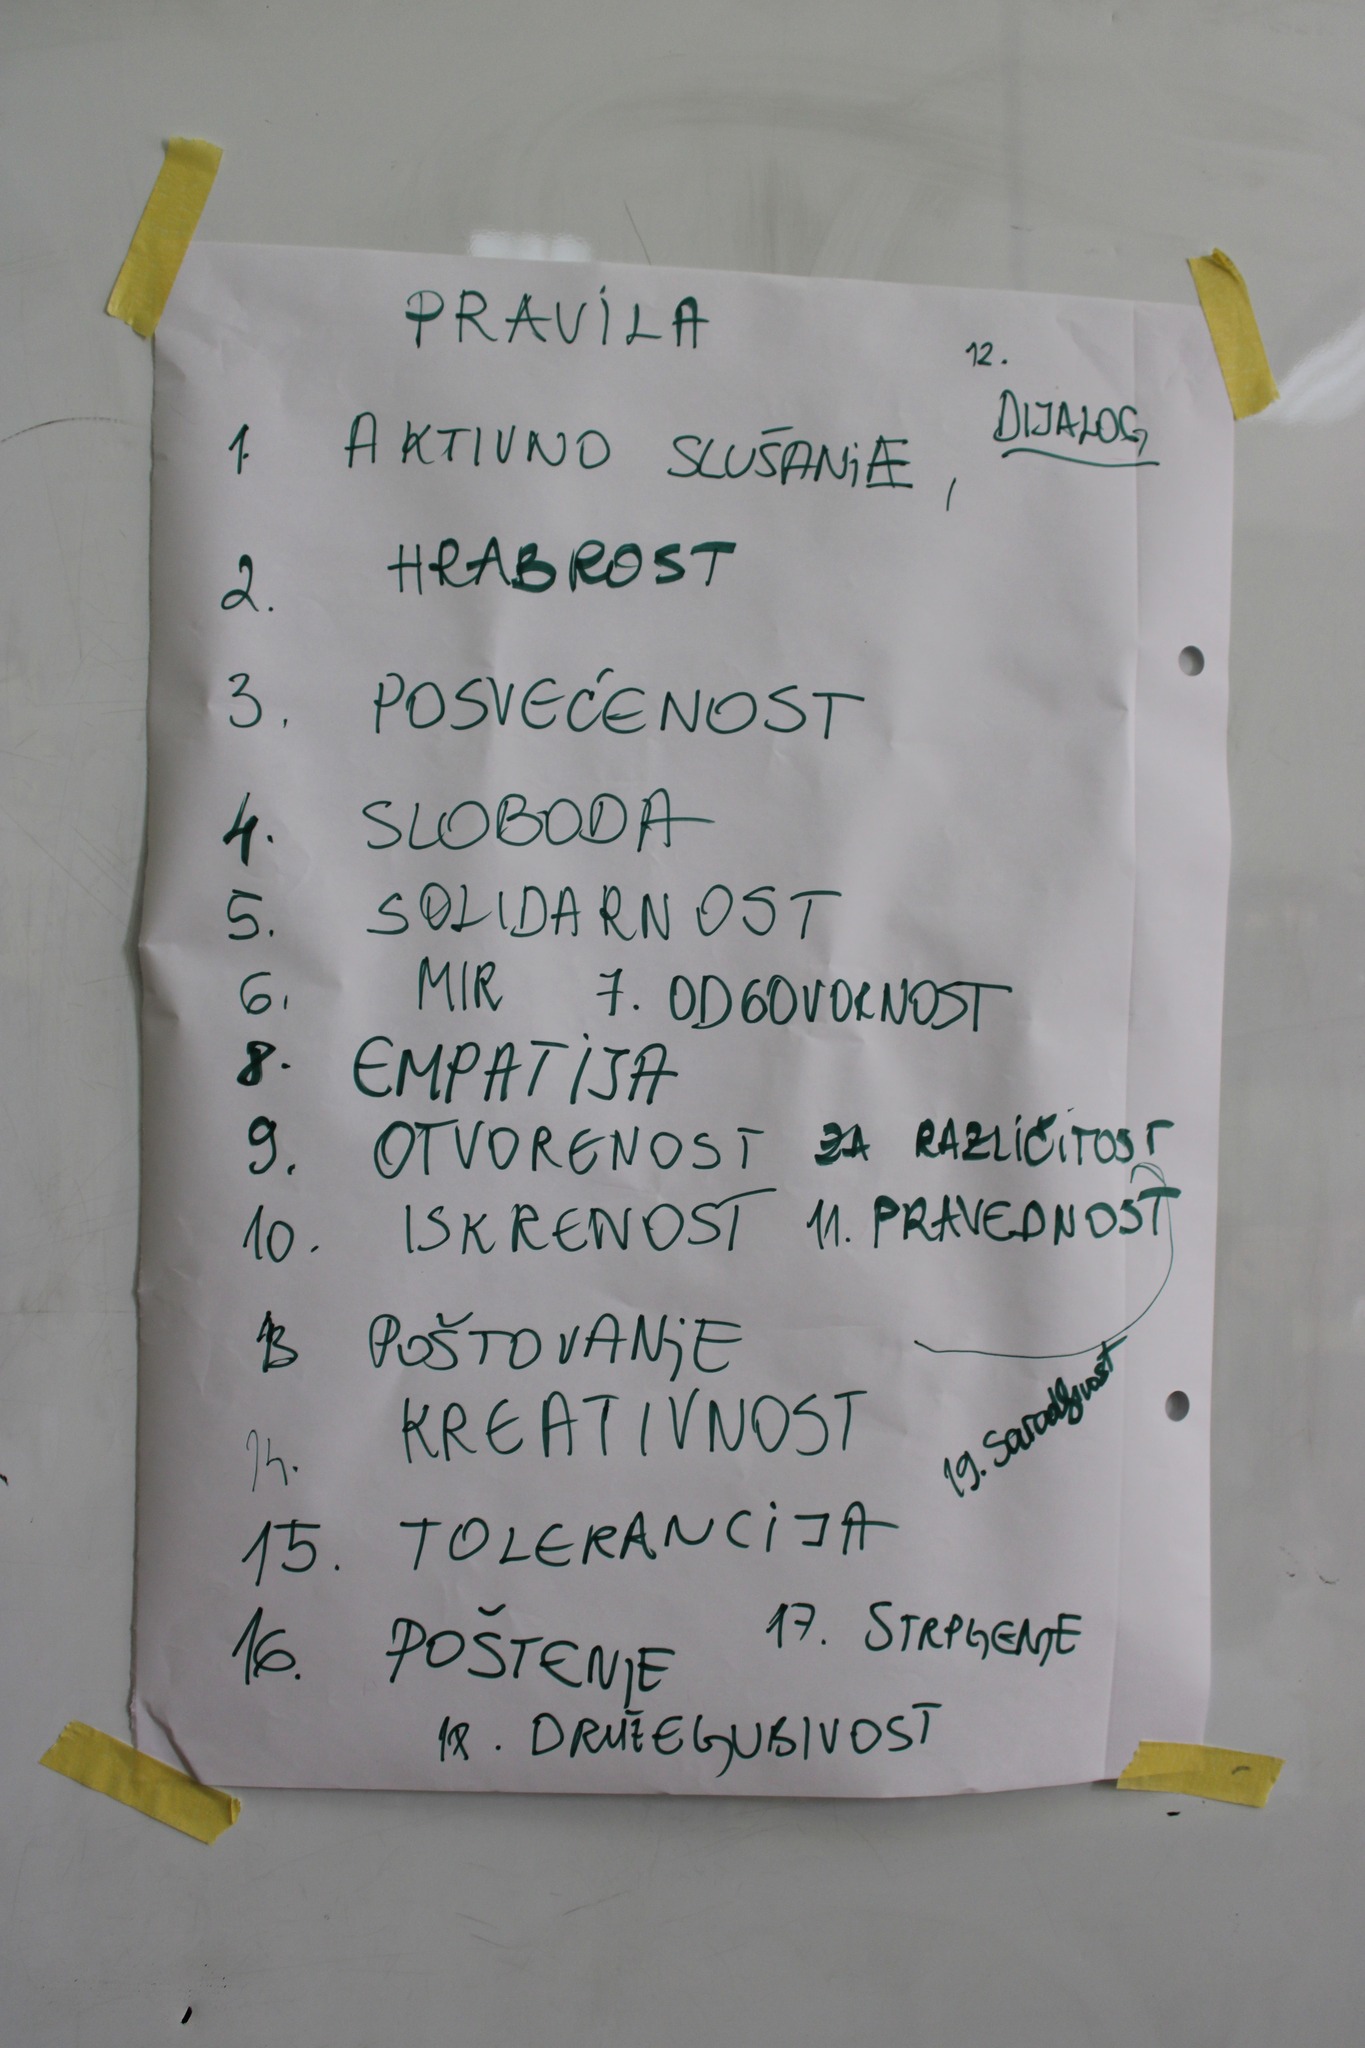 PRAVILA
12.
DIJALOG
1. AKTIVNO SLUŠANJE,
2. HRABROST
3. POSVEĆENOST
4. SLOBODA
5. SOLIDARNOST
6. MIR 7. ODGOVORNOST
8. EMPATIJA
9. OTVORENOST ZA RAZLIČITOST
10. ISKRENOST 11. PRAVEDNOST
13 POŠTOVANJE
14. KREATIVNOST
19. Saradljivost
15. TOLERANCIJA
16. POŠTENJE 17. STRPLJENJE
18. DRUŽELJUBIVOST